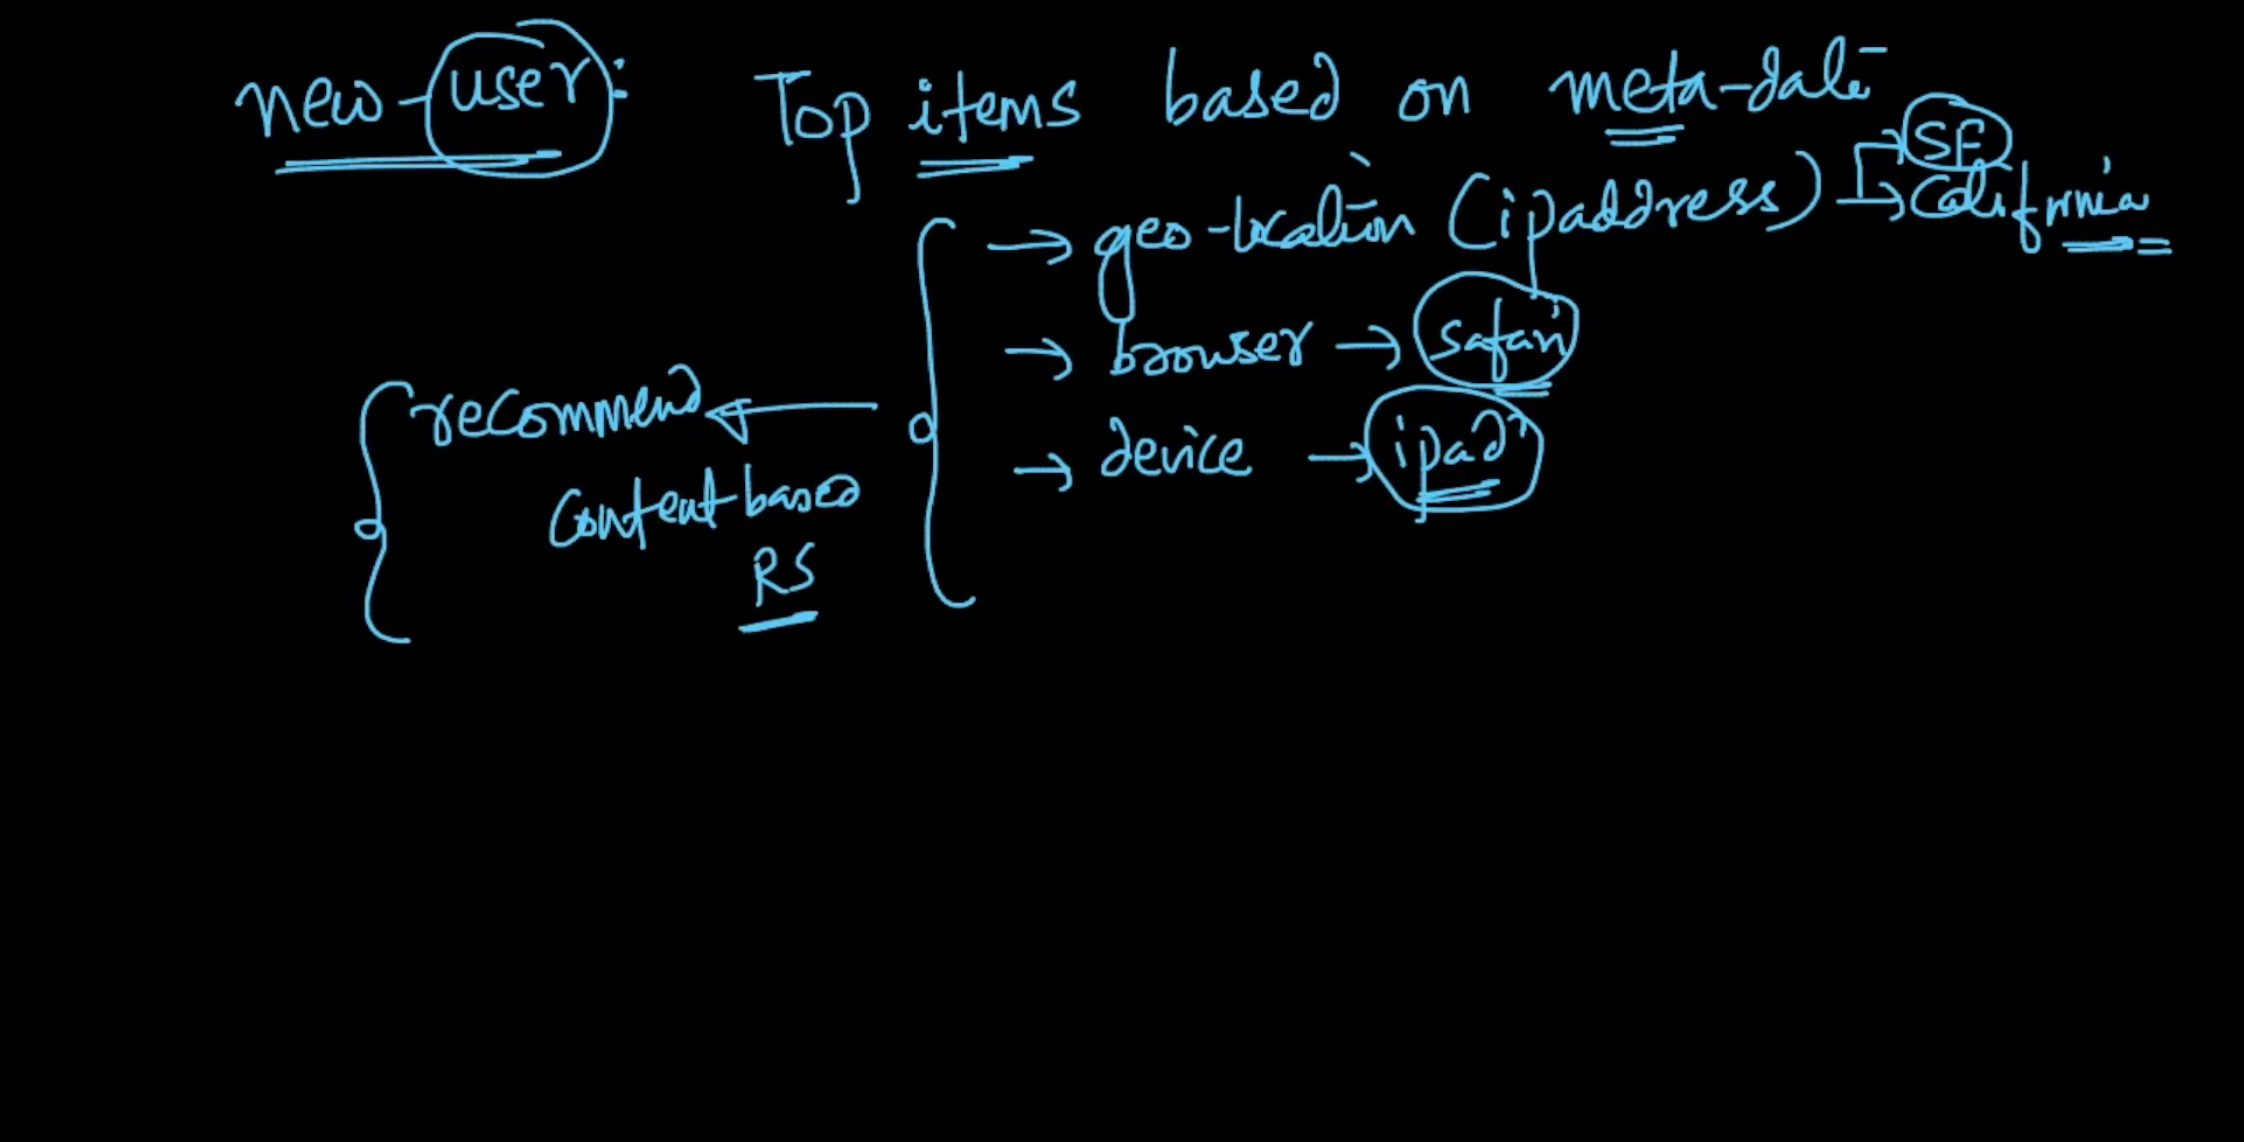 new-user: Top items based on meta-data
→ SF
→ geo-location (ipaddress) → California
→ browser → safari
recommend ← → device → ipad
content based
RS